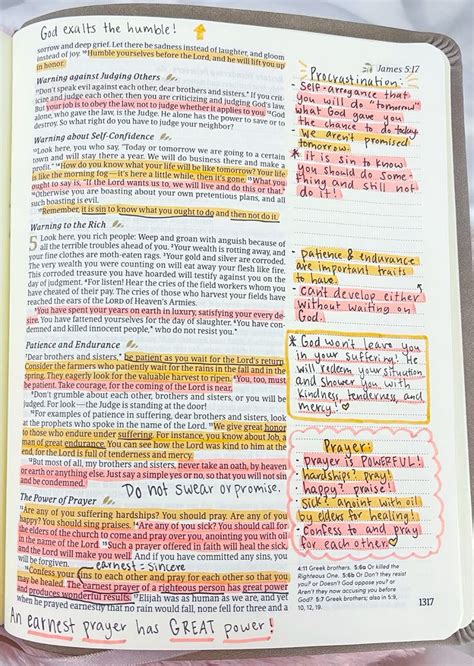 God exalts the humble!
James 5:17
sorrow and deep grief. Let there be sadness instead of laughter, and gloom
instead of joy. 10Humble yourselves before the Lord, and he will lift you up
in honor.
Warning against Judging Others
11Don't speak evil against each other, dear brothers and sisters. If you crit-
icize and judge each other, then you are criticizing and judging God's law.
But your job is to obey the law, not to judge whether it applies to you. 12God
alone, who gave the law, is the Judge. He alone has the power to save or to
destroy. So what right do you have to judge your neighbor?
Warning about Self-Confidence
13Look here, you who say, "Today or tomorrow we are going to a certain
town and will stay there a year. We will do business there and make a
profit." 14How do you know what your life will be like tomorrow? Your life
is like the morning fog—it's here a little while, then it's gone. 15What you
ought to say is, "If the Lord wants us to, we will live and do this or that."
16Otherwise you are boasting about your own pretentious plans, and all
such boasting is evil.
17Remember, it is sin to know what you ought to do and then not do it.
Warning to the Rich
5 Look here, you rich people: Weep and groan with anguish because of
all the terrible troubles ahead of you. 2Your wealth is rotting away, and
your fine clothes are moth-eaten rags. 3Your gold and silver are corroded.
The very wealth you were counting on will eat away your flesh like fire.
This corroded treasure you have hoarded will testify against you on the
day of judgment. 4For listen! Hear the cries of the field workers whom you
have cheated of their pay. The cries of those who harvest your fields have
reached the ears of the LORD of Heaven's Armies.
5You have spent your years on earth in luxury, satisfying your every de-
sire. You have fattened yourselves for the day of slaughter. 6You have con-
demned and killed innocent people, who do not resist you.
Patience and Endurance
7Dear brothers and sisters, be patient as you wait for the Lord's return.
Consider the farmers who patiently wait for the rains in the fall and in the
spring. They eagerly look for the valuable harvest to ripen. 8You, too, must
be patient. Take courage, for the coming of the Lord is near.
9Don't grumble about each other, brothers and sisters, or you will be
judged. For look—the Judge is standing at the door!
10For examples of patience in suffering, dear brothers and sisters, look
at the prophets who spoke in the name of the Lord. 11We give great honor
to those who endure under suffering. For instance, you know about Job, a
man of great endurance. You can see how the Lord was kind to him at the
end, for the Lord is full of tenderness and mercy.
12But most of all, my brothers and sisters, never take an oath, by heaven
or earth or anything else. Just say a simple yes or no, so that you will not sin
and be condemned.
Do not swear or promise.
The Power of Prayer
13Are any of you suffering hardships? You should pray. Are any of you
happy? You should sing praises. 14Are any of you sick? You should call for
the elders of the church to come and pray over you, anointing you with oil
in the name of the Lord. 15Such a prayer offered in faith will heal the sick,
and the Lord will make you well. And if you have committed any sins, you
will be forgiven.
earnest = sincere
16Confess your sins to each other and pray for each other so that you
may be healed. The earnest prayer of a righteous person has great power
and produces wonderful results. 17Elijah was as human as we are, and yet
when he prayed earnestly that no rain would fall, none fell for three and a
An earnest prayer has GREAT power!
Procrastination:
- Self-arrogance that
you will do "tomorrow"
what God gave you
the chance to do today.
- We aren't promised
tomorrow.
* it is sin to know
you should do some-
thing and still not
do it!
- patience & endurance
are important traits
to have!
- Can't develop either
without waiting on
God.
* God won't leave you
in your suffering! He
will redeem your situation
and shower you with
kindness, tenderness, and
mercy! ♡
Prayer:
- prayer is POWERFUL!
hardships? pray!
happy? praise!
sick? anoint with oil
by elders for healing!
- Confess to and pray
for each other ♡
4:11 Greek brothers. 5:6a Or killed the
Righteous One. 5:6b Or Don't they resist
you? or Doesn't God oppose you? or
Aren't they now accusing you before
God? 5:7 Greek brothers; also in 5:9,
10, 12, 19.
1317